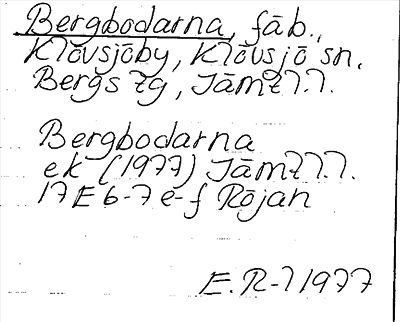 Bergbodarna, fäb.,
Klövsjöby, Klövsjö sn,
Bergs tg, Jämtl.l.
Bergbodarna
ek (1977) Jämtl.l.
17E 6-7 e-f Röjan
E.R-l 1977